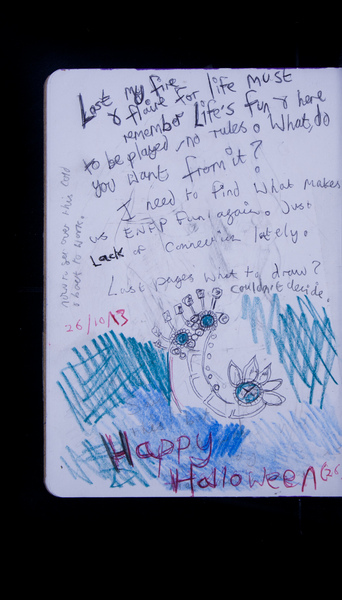 Lost my fire
& flaire for life must
remember Life's fun & here
to be played no rules. What do
you want from it?
I need to find what makes
us ENFP fun again. Just
Lack of connection lately.
Last pages what to draw?
couldn't decide.
over this cold
back to work.
26/10/13
Happy
Halloween